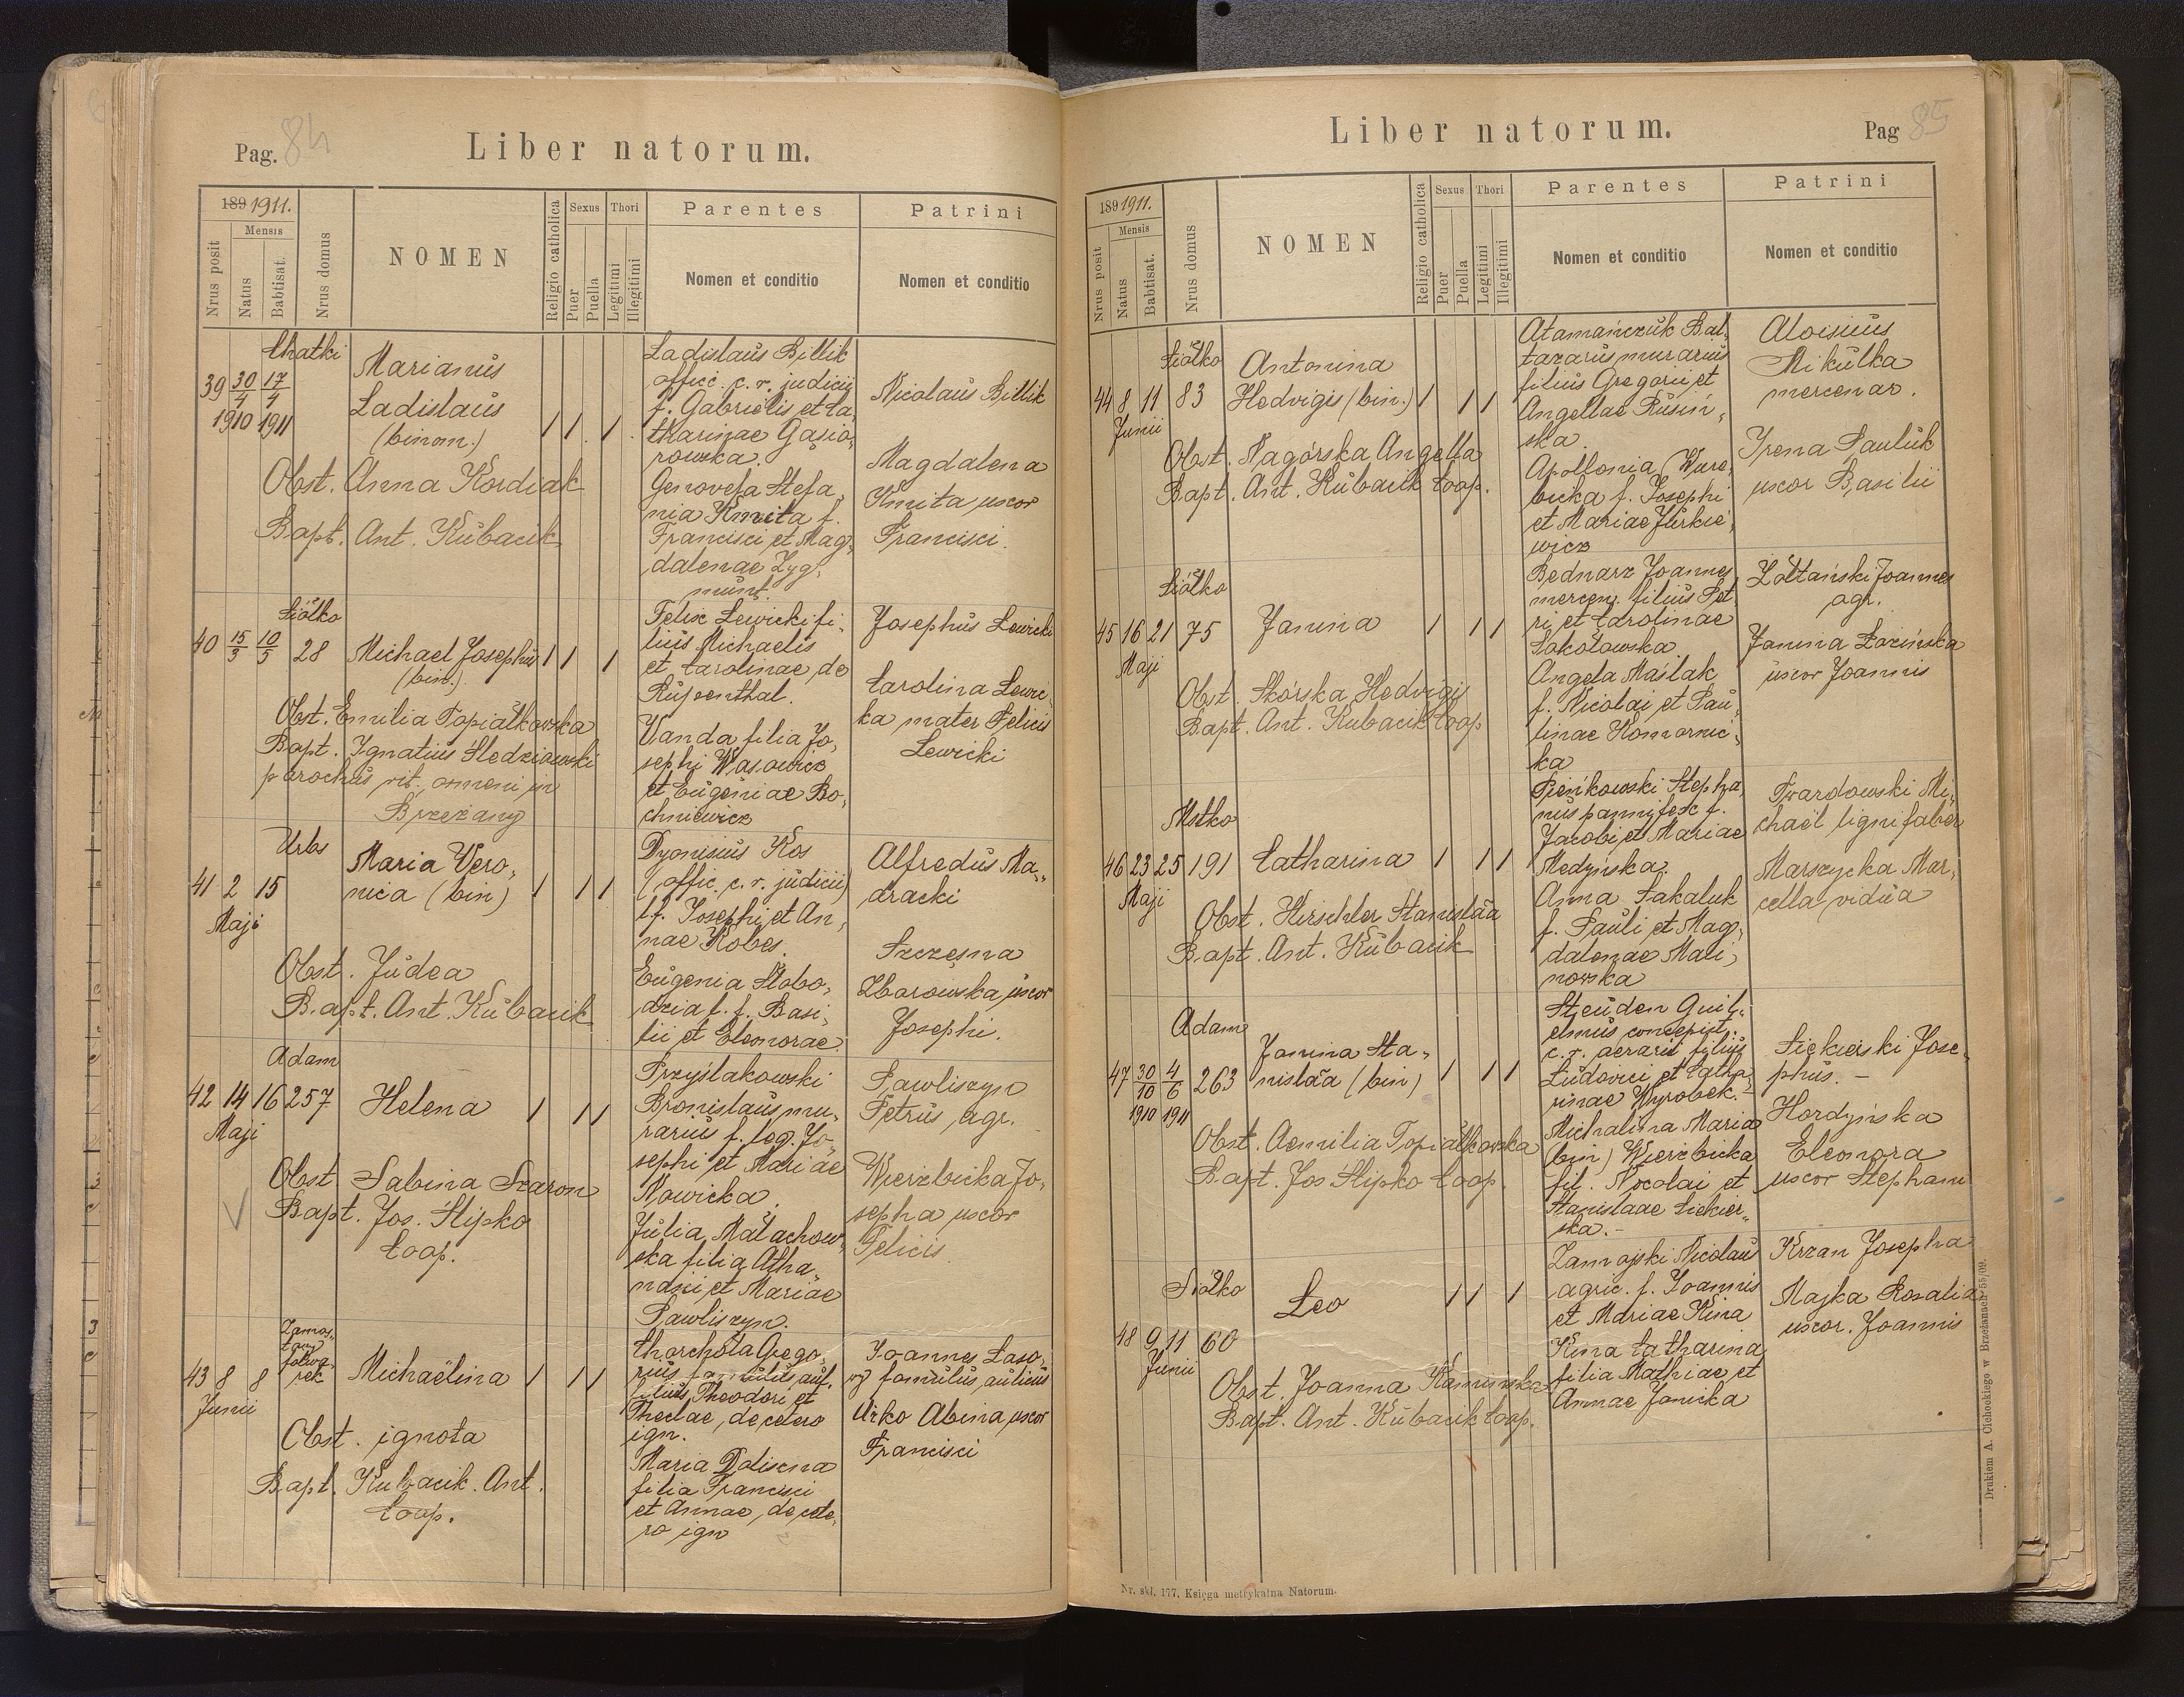 Pag. 84
Liber natorum.
189 1911.
Mensis
Nrus posit
Natus
Babtisat.
Nrus domus
NOMEN
Religio catholica
Sexus
Puer
Puella
Thori
Legitimi
Illegitimi
Parentes
Nomen et conditio
Patrini
Nomen et conditio
Chatki
39 30/4 17/4
1910 1911
Marianus
Ladislaus
(binom.)
Obst. Anna Kordiak
Bapt. Ant. Kubacik
Ladislaus Billik
offic. c. r. judicii
f. Gabrielis et Ca,
tharinae Gąsio,
rowska.
Genovefa Stefa,
nia Kmita f.
Francisci et Mag,
dalenae Zyg,
munt.
Nicolaus Billik
Magdalena
Kmita uxor
Francisci.
Siółko
40 15/3 10/5 28
Michael Josephus
(bin.)
Obst. Emilia Topiałkowska
Bapt. Ignatius Sledziowski
parochus rit. armeni in
Brzeżany
Felix Lewicki fi,
lius Michaelis
et Carolinae de
Wanda filia Jo,
sephi Wasowicz
et Eugeniae Bo,
chniewicz
Josephus Lewicki
Carolina Lewic
ka mater Felicis
Lewicki
Urbs
41 2 15
Maji
Maria Vero,
nica (bin)
Obst. Judea
Bapt. Ant. Kubacik
Dyonisius Kos
(offic. c. r. judicii)
f. Josephi et An,
nae Kobes.
Eugenia Słobo,
dzia f. f. Basi,
lii et Eleonorae.
Alfredus Ma,
dracki
Szczęsna
Zbarowska uxor
Josephi.
Adam
42 14 16 257
Maji
Helena
Obst Sabina Szaron
Bapt. Jos. Slipko
Coop.
Przyślakowski
Bronislaus mu,
rarius f. leg. Jo,
sephi et Mariae
Nowicka.
Julia Małachow,
ska filia Atha,
nazii et Mariae
Pawliszyn.
Pawliszyn
Petrus, agr.
Wierzbicka Jo,
sepha uxor
Felicis
folwa,
rek
43 8 8
Junii
Michaëlina
Obst. ignota
Bapt. Kubacik Ant.
Coop.
Charchota Grego,
rius famulus aul.
filius Theodori et
Theclae, de cetero
ign.
Maria Doliszna
filia Francisci
et Annae, de cete,
ro ign
Joannes Laso,
famulus aulicus
Urko Albina uxor
Francisci
Liber natorum.
Pag 85
189 1911.
Mensis
Nrus posit
Natus
Babtisat.
Nrus domus
NOMEN
Religio catholica
Sexus
Puer
Puella
Thori
Legitimi
Illegitimi
Parentes
Nomen et conditio
Patrini
Nomen et conditio
Siółko
44 8 11 83
Junii
Antonina
Hedvigis (bin.)
Obst. Nagórska Angella
Bapt. Ant. Kubacik Coop.
Atamańczuk Bal,
tazarus murarius
filius Gregorii et
Angellae Rusiń,
ska.
Apollonia Wierz,
bicka f. Josephi
et Mariae Jurkie,
wicz
Aloisius
Mikulka
mercenar.
Irena Pauluk
uxor Basilii
Siółko
45 16 21 75
Maji
Janina
Obst. Skórska Hedvigis
Bapt. Ant. Kubacik Coop
Bednarz Joannes
mercen. filius Pet
ri et Carolinae
Sokołowska
Angela Maślak
f. Nicolai et Pau,
linae Komornic,
ka
Zółtański Joannes
agr.
Janina Łozińska
uxor Joannis
Mstko
46 23 25 191
Maji
Catharina
Obst. Hirschler Stanisláa
Bapt. Ant. Kubacik
Pieńkowski Stepha,
nus pannifex f.
Jacobi et Mariae
Medyńska.
Anna Sakaluk
f. Pauli et Mag,
dalenae Mali,
nowska
Twardowski Mi,
chael lignifaber
Marszycka Mar,
cella vidua
Adam
47 30/10 4/6 263
1910 1911
Janina Sta,
nisláa (bin)
Obst. Aemilia Topiałkowska
Bapt. Jos Slipko Coop.
Steuden Guili,
elmus concepist.
c. r. aerarii filius
Ludovici et Catha,
rinae Wyrobek.-
Michalina Maria
(bin) Wierzbicka
fil. Nocolai et
Stanislaae Siekier,
ska.-
Siekierski Jose,
phus.-
Hordyńska
Eleonora
uxor Stephani
Siółko
48 9 11 60
Junii
Leo
Obst. Joanna Kaminska
Bapt. Ant. Kubacik Coop.
Zamojski Nicolaus
agric. f. Joannis
et Mariae Kina
Kina Catharina
filia Mathiae et
Annae Janicka
Krzan Josepha
Majka Rosalia
uxor. Joannis
Nr. skł. 177. Księga metrykalna Natorum.
Drukiem A. Cichockiego w Brzeżanach 55/09.